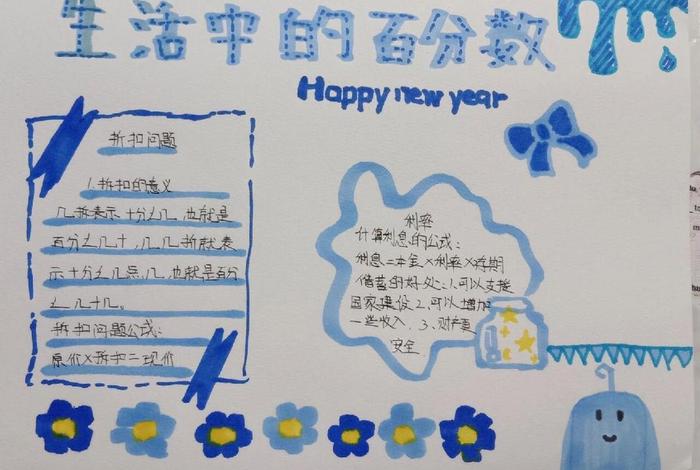 生活中的百分数
Happy new year
折扣问题
1.折扣的意义
几折表示十分之几,也就是
百分之几十,几.几折就表
示十分之几点几,也就是百分
之几十几。
折扣问题公式:
原价×折扣=现价
利率
计算利息的公式:
利息=本金×利率×存期
储蓄的好处:1.可以支援
国家建设2.可以增加
一些收入.3、财产更
安全.